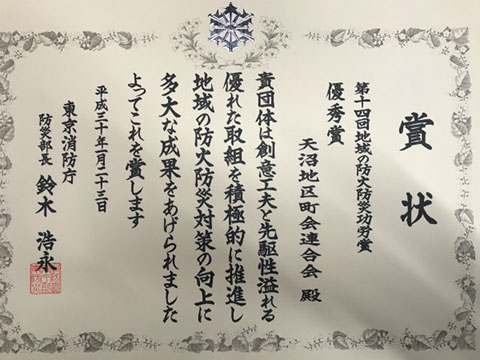 賞状
第十四回地域の防火防災功労賞
優秀賞
天沼地区町会連合会 殿
貴団体は創意工夫と先駆性溢れる
優れた取組を積極的に推進し
地域の防火防災対策の向上に
多大な成果をあげられました
よってこれを賞します
平成三十年一月二十三日
東京消防庁
防災部長 鈴木 浩永